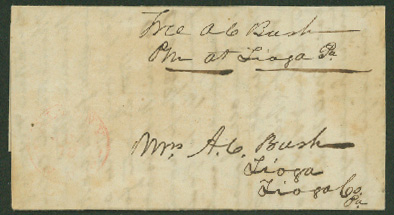 Free A C Bush
Pm at Tioga Pa
Mrs A. C. Bush
Tioga
Tioga Co.
Pa